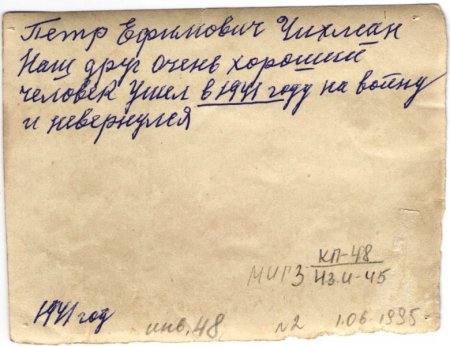 Петр Ефимович Чихман
Наш друг очень хороший
человек Ушел в 1941 году на войну
и невернулся
КП-48
МИГЗ Из.И-45
1941 год инв. 48 №2 1.06.1995.